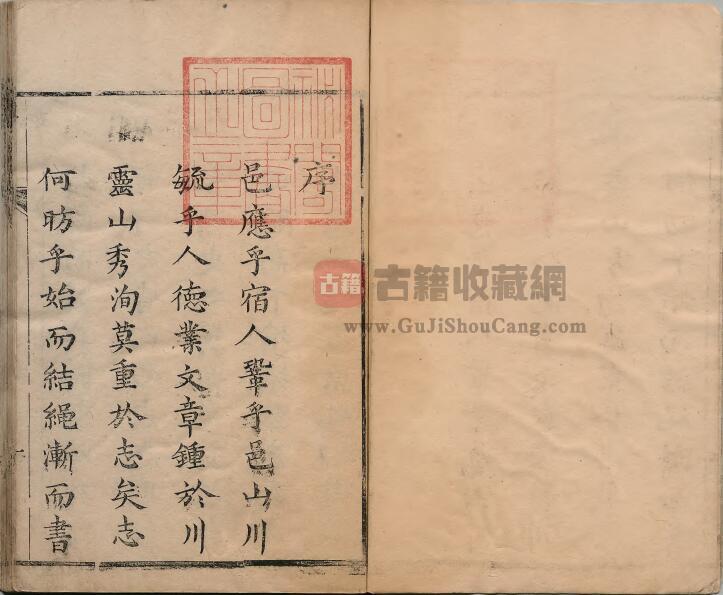 序
邑應乎宿人鞏乎邑山川
毓乎人徳業文章鍾於川
靈山秀洵莫重於志矣志
何昉乎始而結繩漸而書
古籍
古籍收藏網
www.GuJiShouCang.com